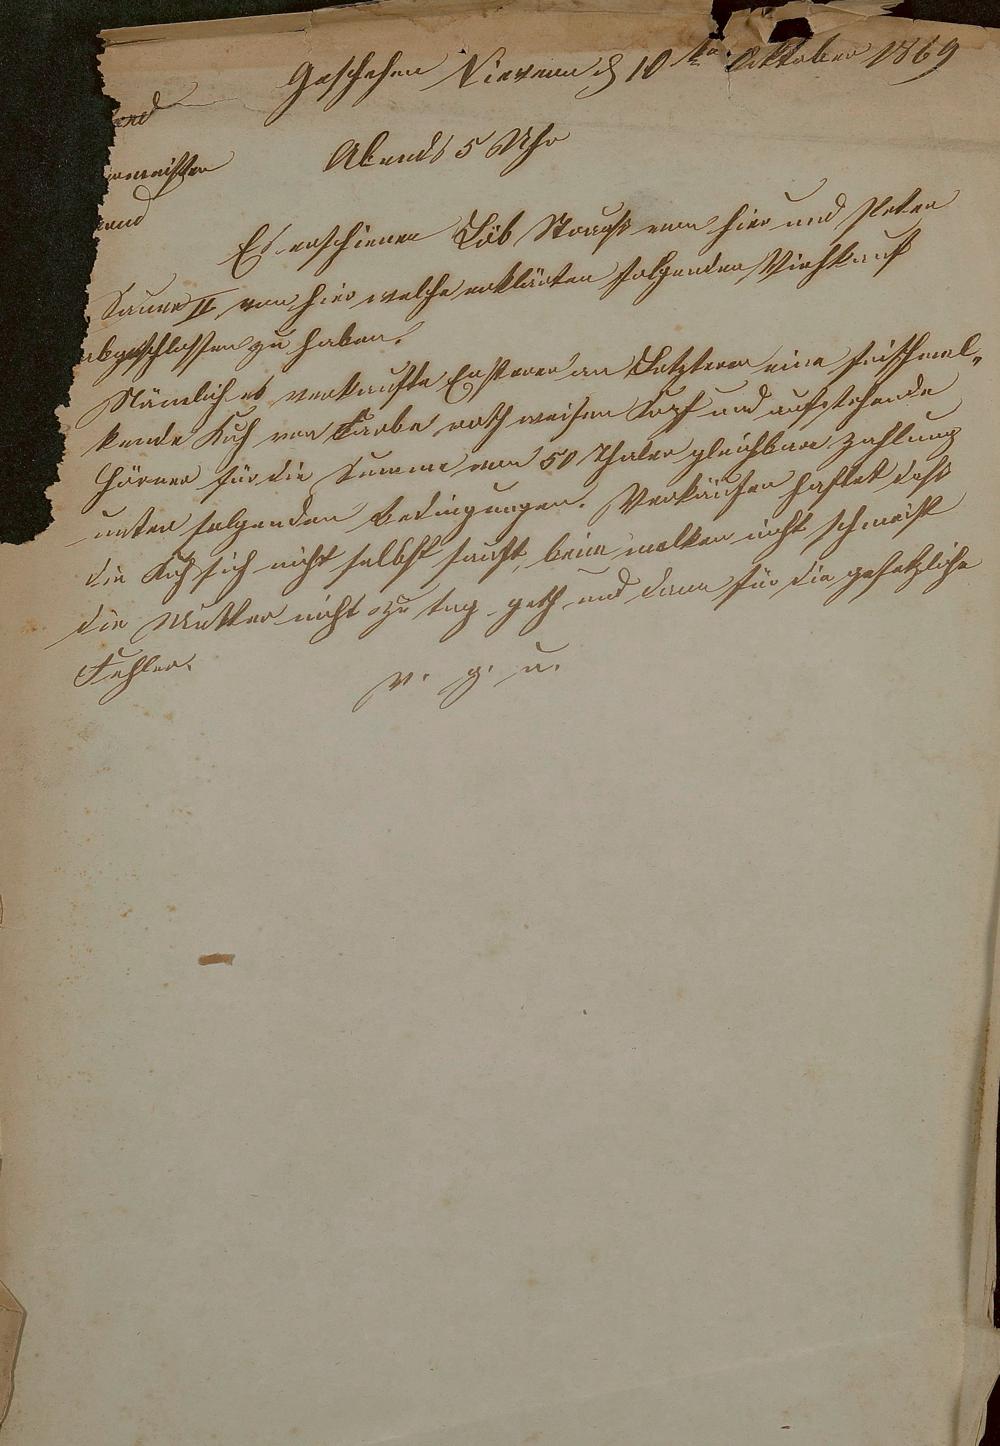 Geschehen Nievern d 10ten Oktober 1869
end
rmeister
Abends 5 Uhr
und
Es erschienen Löb Strauß von hier und Peter
Saure II von hier welche erklärten folgenden Viehkauf
abgeschlossen zu haben.
Nämlich es verkaufte Ersterer an Letzteren eine frischmel-
kende Kuh von Farbe roth weisen Kopf und aufstehende
Hörner für die Summe von 50 Thaler gleichbare Zahlung
unter folgenden Bedingungen. Verkäufer haftet daß
die Kuh sich nicht selbst sauft, beim melken nicht schmeist
die Mutter nicht zu tag geth und dann für die gesetzliche
Fehler.
v. g. u.